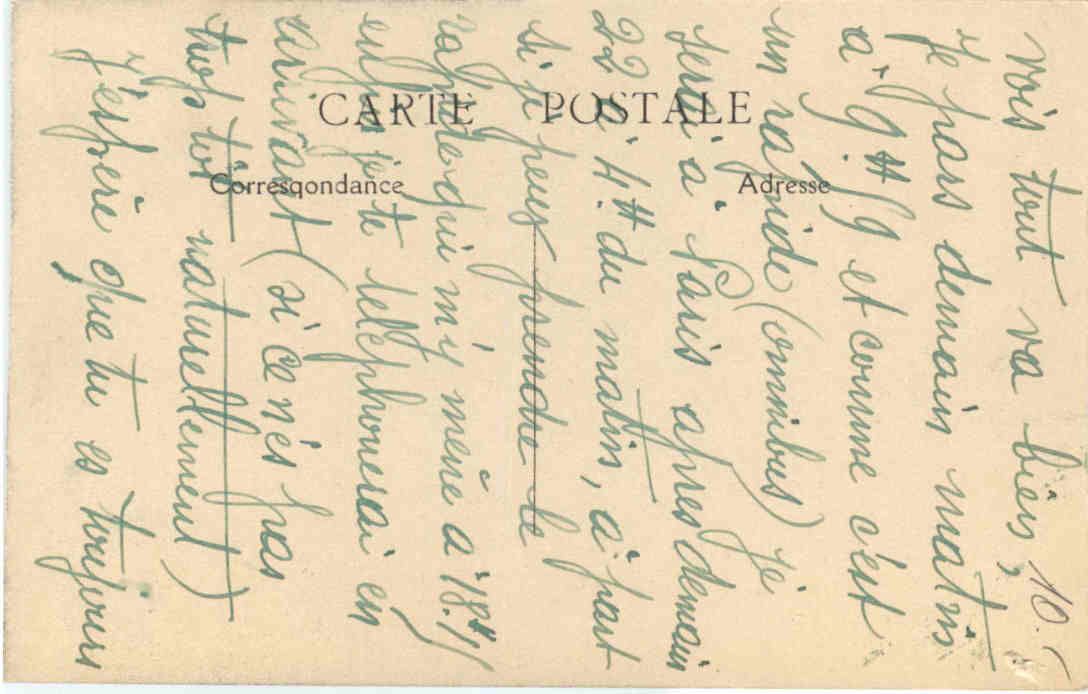 CARTE POSTALE
Correspondance
Adresse
vois tout va bien,
Je pars demain matin
à 9H/9 et comme c'est
un rapide (omnibus) je
serai à Paris apres demain
22 à 4H du matin, à part
si je peux prendre le
rapide qui m'y mène à 18H/
enfin je te telephonerai en
arrivant (si ce n'és pas
trop tôt naturellement)
J'espère que tu es toujours
10.-